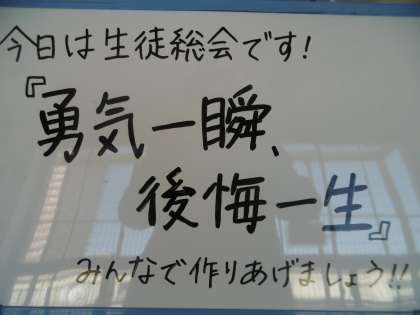 今日は生徒総会です!
『勇気一瞬、
後悔一生』
みんなで作りあげましょう!!